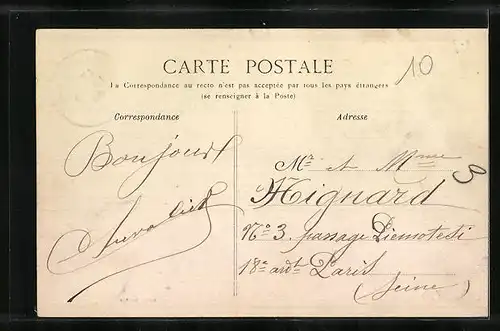 CARTE POSTALE
10
La Correspondance au recto n'est pas acceptée par tous les pays étrangers
(se renseigner à la Poste)
Correspondance
Adresse
Bonjour
Mr et Mme
3
Hignard
No 3. passage
18e ardt Paris
(Seine)